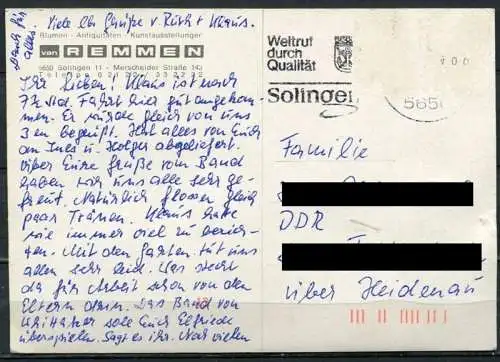 Viele lb. Grüße v. Ruth + Klaus.
Dank für alles.
Blumen - Antiquitäten - Kunstausstellungen
van REMMEN
5650 Solingen 11 - Merscheider Straße
Telefon 02122
Ihr Lieben! Klaus ist nach
7½ Std. Fahrt hier gut angekom-
men. Er wurde gleich von uns
3en begrüßt. Hat alles von Euch
an Ines u. Holger abgeliefert.
Über Eure Grüße vom Band
haben wir uns alle sehr ge-
freut. Natürlich flossen gleich
paar Tränen. Klaus hatte
wie immer viel zu berich-
ten. Mit dem Garten tut uns
allen sehr leid. Was steckt
da für Arbeit schon von den
Eltern drin. Das Band von
soll Euch Elfriede
überspielen. Sagt es ihr. War vielen
Weltruf
durch
Qualität
Solingen
900
565
Familie
DDR
über Heidenau